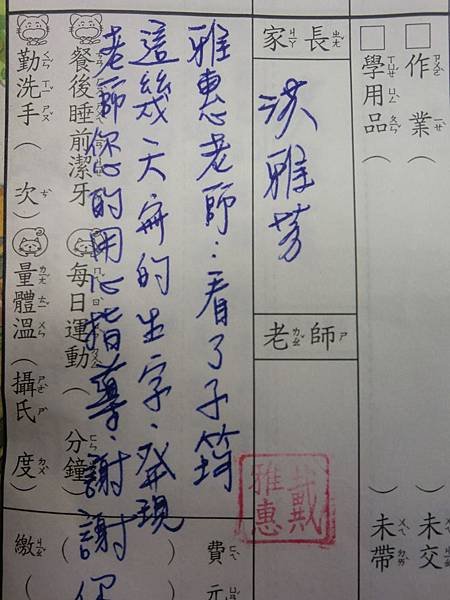 □作業（ ）未交
□學用品（ ）未帶
家長
洪雅芳
老師
戴雅惠
雅惠老師：看了子
這幾天寫的生字，發現
老師你的用心指導，謝謝你
餐後睡前潔牙 每日運動 分鐘
勤洗手（ 次） 量體溫（攝氏 度）
費 元
繳（ ）（